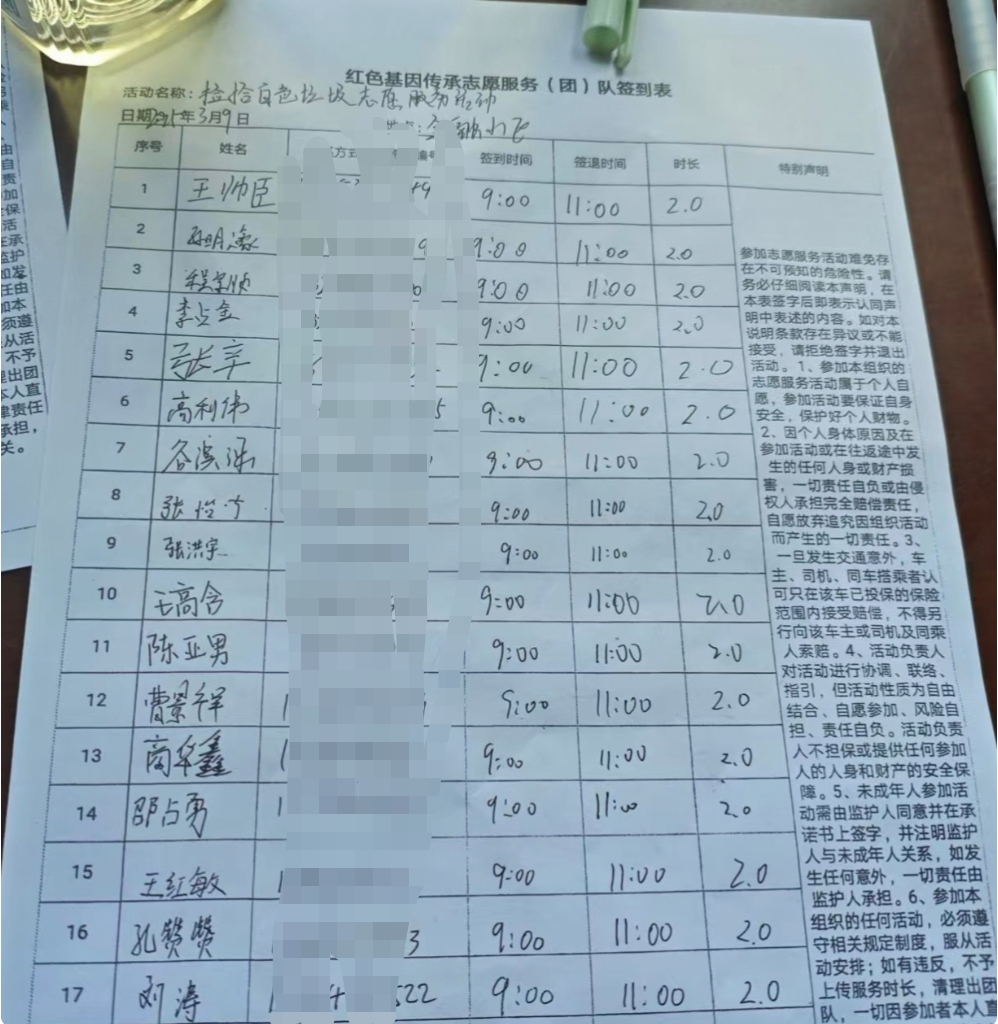 红色基因传承志愿服务（团）队签到表
活动名称：捡拾白色垃圾志愿服务活动
日期2025年3月9日
序号 姓名 方式 编号 签到时间 签退时间 时长 特别声明
1 王帅臣 49 9:00 11:00 2.0
2 9:00 11:00 2.0
3 9:00 11:00 2.0
4 李占金 9:00 11:00 2.0
5 张辛 9:00 11:00 2.0
6 高利伟 5 9:00 11:00 2.0
7 谷溪涵 9:00 11:00 2.0
8 张 9:00 11:00 2.0
9 张洪宇 9:00 11:00 2.0
10 王高含 9:00 11:00 2.0
11 陈亚男 9:00 11:00 2.0
12 曹景祥 9:00 11:00 2.0
13 高华鑫 9:00 11:00 2.0
14 邵占勇 9:00 11:00 2.0
15 王红敏 9:00 11:00 2.0
16 孔赞赞 3 9:00 11:00 2.0
17 刘涛 522 9:00 11:00 2.0
参加志愿服务活动难免存
在不可预知的危险性。请
务必仔细阅读本声明，在
本表签字后即表示认同声
明中表述的内容。如对本
说明条款存在异议或不能
接受，请拒绝签字并退出
活动。1、参加本组织的
志愿服务活动属于个人自
愿，参加活动要保证自身
安全，保护好个人财物。
2、因个人身体原因及在
参加活动或在往返途中发
生的任何人身或财产损
害，一切责任自负或由侵
权人承担完全赔偿责任，
自愿放弃追究因组织活动
而产生的一切责任。3、
一旦发生交通意外，车
主、司机、同车搭乘者认
可只在该车已投保的保险
范围内接受赔偿，不得另
行向该车主或司机及同乘
人索赔。4、活动负责人
对活动进行协调、联络、
指引，但活动性质为自由
结合、自愿参加、风险自
担、责任自负。活动负责
人不担保或提供任何参加
人的人身和财产的安全保
障。5、未成年人参加活
动需由监护人同意并在承
诺书上签字，并注明监护
人与未成年人关系，如发
生任何意外，一切责任由
监护人承担。6、参加本
组织的任何活动，必须遵
守相关规定制度，服从活
动安排；如有违反，不予
上传服务时长，清理出团
队，一切因参加者本人直